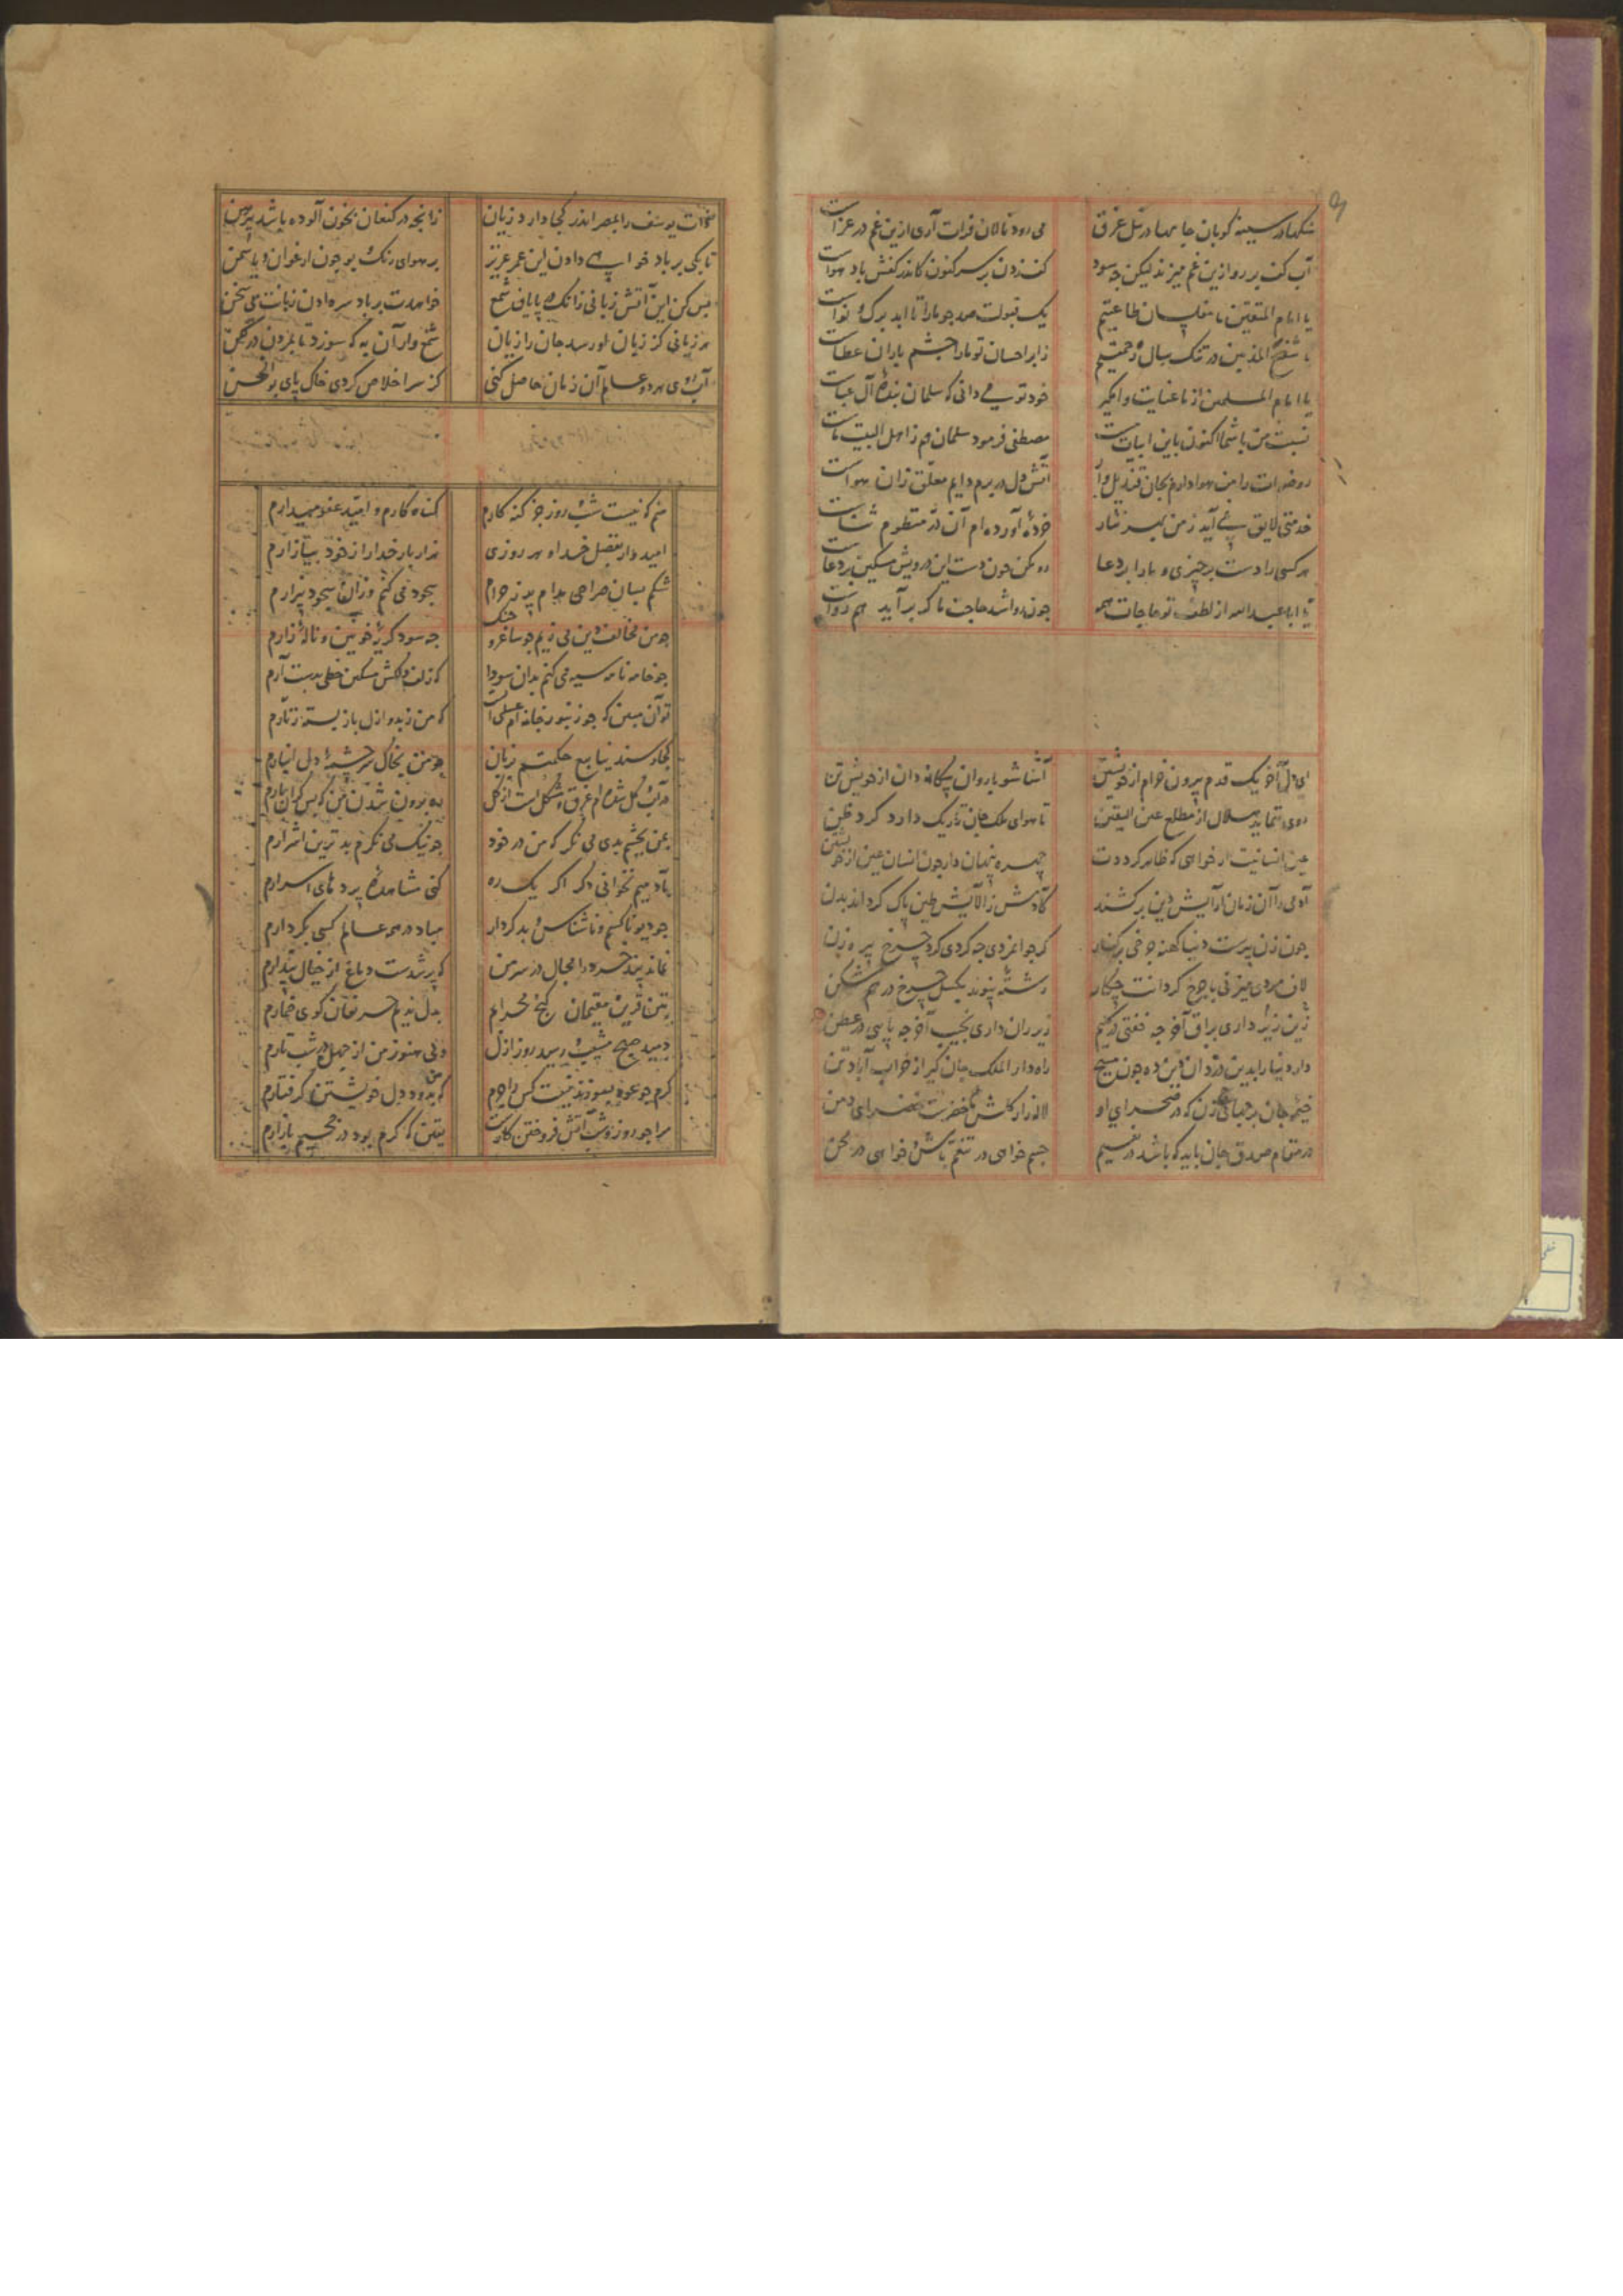 سنگها در سینه کوبان جامها در نیل غرق می رود نالان فرات آری ازین غم در عزاست
آب کف بر رو ازین غم میزند لیکن چه سود کف زدن بر سر کنون کاندر کفش باد هواست
یا امام المتقین ما مفلسان طاعتیم یک قبولت صد چو ما را تا ابد برک و نواست
یا شفیع المذنبین در خشک سال رحمتیم زابر احسان تو ما را چشم باران عطاست
یا امام المسلمین از ما عنایت وا مگیر خود تو می دانی که سلمان بنده آل عباست
نسبت من با شما اکنون باین ابیات نیست مصطفی فرمود سلمان هم ز اهل البیت ماست
روضه ات را من هوا دارم بجان قندیل وار آتش دل در برم دایم معلق زان هواست
خدمتی لایق نمی آید ز من بهر نثار خرده آورده ام آن در منظوم ثناست
هر کسی را دست بر چیزی و ما را بر دعا رد مکن چون دست این درویش مسکین بر دعاست
یا ابا عبد الله از لطف تو حاجات همه چون روا شد حاجت ما کر برآید هم رواست
ای دل آخر یک قدم بیرون خرام از خویشتن آشنا شو با روان بیگانه دان از خویش تن
روی ننماید هلال از مطلع عین الیقین تا هوای ملک جان تاریک دارد کرد ظن
عین انسانیت ار خواهی که ظاهر کرددت چهره پنهان دار چون انسان عین از خویشتن
آدمی را آن زمان آرایش دین برکشند کادمش ز آلایش طین پاک کرداند بدن
چون زن پرست دنیا کهنه چرخی بر کنار کر جوانمردی چه کردی کرد چرخ پیره زن
لاف مردی میزنی با چرخ کردانت چکار رشته پیوند بکسل چرخ در هم شکن
زین زیر داری براق آخر چه خفتی در کیم زیر ران داری نجیب آخر چه پاسی در عطن
دار دنیا را بدین دزدان دین ده چون مسیح راه دار الملک جان گیر از خراب آباد تن
خیمه جان بر جهانی زن که در صحرای او لاله زار کلشن خضرت خضرای دمن
در مقام صدق جان باید که باشد در نعیم جسم خواهی در تنعم باش خواهی در محن
ذات یوسف را بمصر اندر کجا دارد زیان زانچه در کنعان بخون آلوده باشد پیرهن
تا بکی بر باد خواهی دادن این عمر عزیز بر هوای رنک و بو چون ارغوان و یاسمن
بس کن این آتش زبانی زانک در پایان شمع خواهدت بر باد سر دادن زبانت بی سخن
هر زبانی کز زبان او رسد جان را زیان شمع وار آن به که سوزد تا بمردن در لکن
آب روی هر دو عالم آن زمان حاصل کنی کز سر اخلاص کردی خاک پای بوالحسن
منم که نیست شب و روز جز کنه کارم کناه کارم و امید عفو میدارم
امیدوار بفضل خدا و هر روزی هزار بار خدا را ز خود بیازارم
شکم بسان صراحی مدام پر ز حرام سجود می کنم و زان سجود بیزارم
چو من مخالف دین می زیم چو ساغر و چنک چه سود کریه خونین و ناله زارم
چو خامه نامه سیه می کنم بدان سودا که زلف دلکش مشکین خطی بدست آرم
تو آن مبین که چو زنبور خانه ام عسلی است که من ز بدو ازل باز بسته زنارم
کجا رسند ینابیع حکمتم بزبان چو من بخاک سرچشمه دلی انبارم
در آب و کل شده ام غرق و مشکل است از کل بدر برون شدن من که بس کران بارم
بمن بچشم بدی می نکر که من در خود چو نیک می نکرم بد ترین اشرارم
بآدمیم نخوانی دکر اکر یک ره کنی مشاهده پردهای اسرارم
چو دیو ناکسم و ناشناس و بد کردار مباد در همه عالم کسی بکردارم
نماند پند خرد را مجال در سر من که پر شدست دماغ از خیال پندارم
بتن قرین مقیمان کنج محرابم بدل ندیم حریفان کوی خمارم
دمید صبح مشیب و رسید روز ازل ولی هنوز من از جهل در شب تارم
کرم چو عود بسوزند نیست کس را جرم که من بدود دل خویشتن کرفتارم
مرا چو روز و شب آتش فروختن کارست یقین که کرم بود در جحیم بازارم